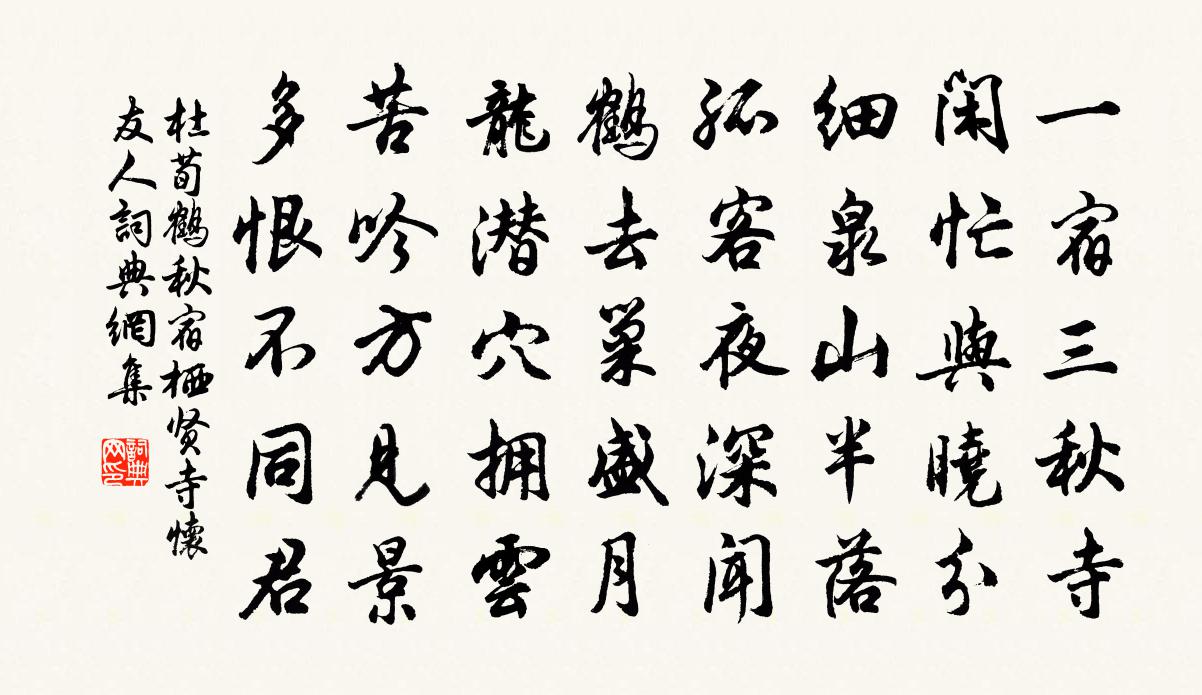 一宿三秋寺
閑忙與曉分
細泉山半落
孤客夜深聞
鶴去巢盛月
龍潛穴拥雲
苦吟方見景
多恨不同君
杜荀鶴秋宿栖贤寺懷
友人詞典網集
詞典网印